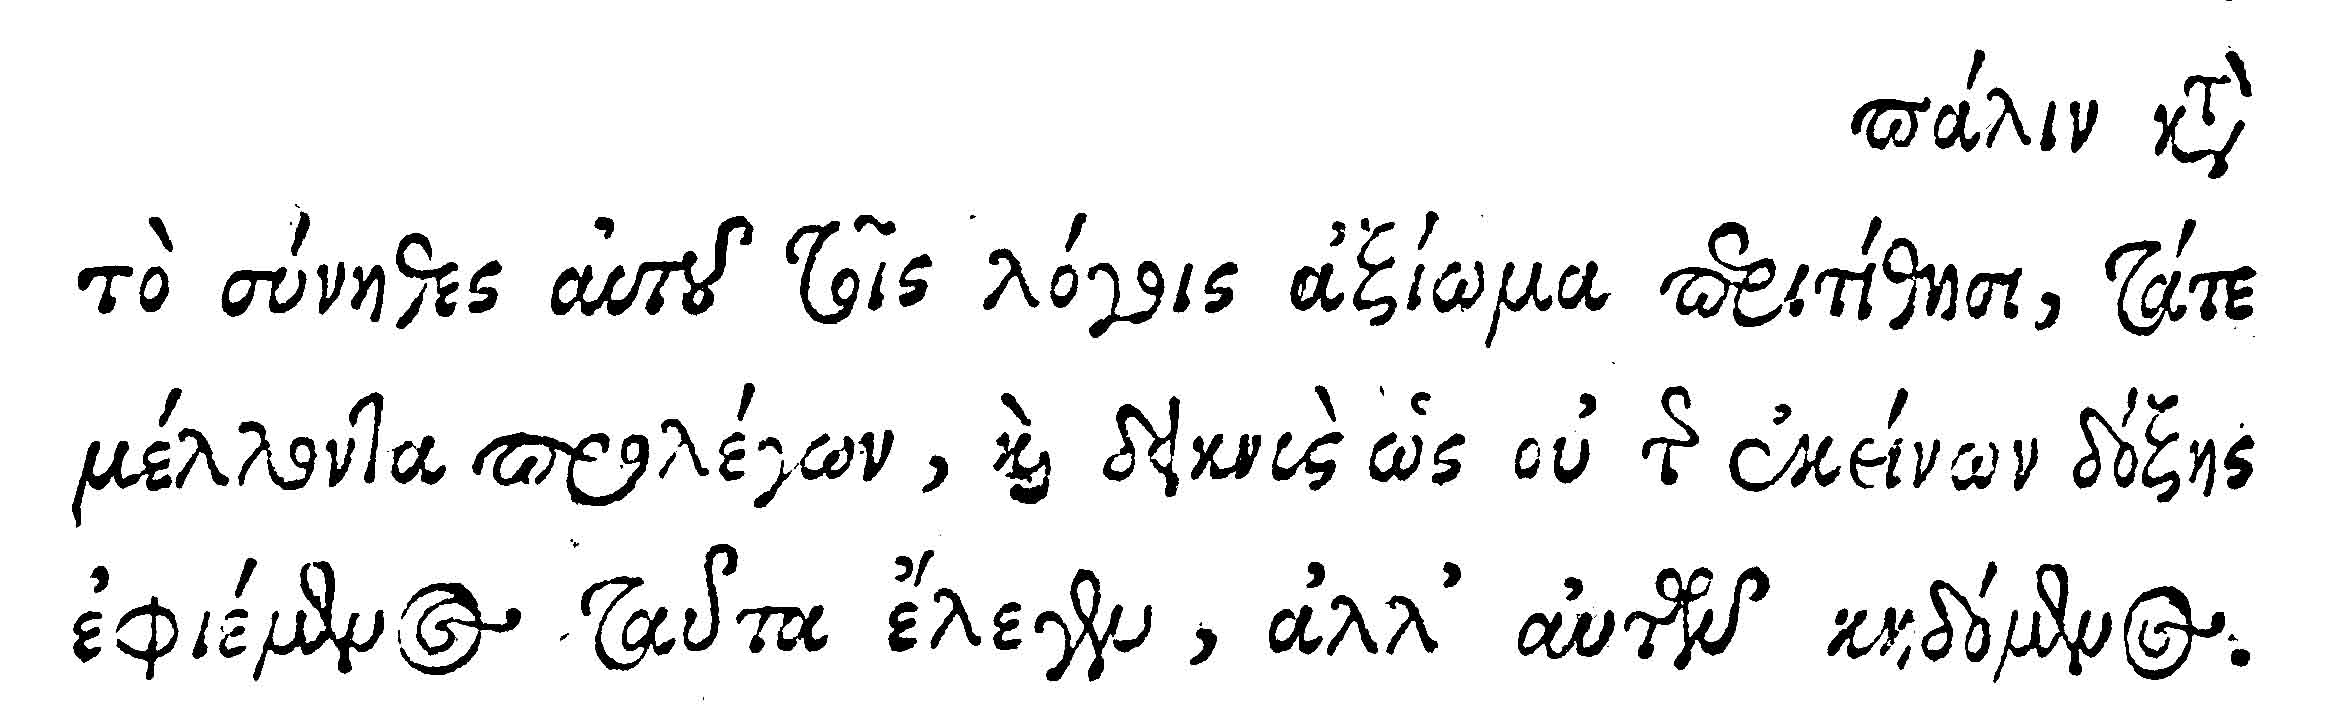 πάλιν κατὰ
τὸ σύνηθες αὐτοῦ τοῖς λόγοις ἀξίωμα περιτίθησι, τάτε
μέλλοντα προλέγων, καὶ δεικνὺς ὡς οὐ τῆς ἐκείνων δόξης
ἐφιέμενος ταῦτα ἔλεγεν, ἀλλ' αὐτῶν κηδόμενος.